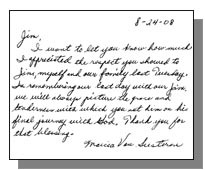 8-24-08
Jim,
I want to let you know how much
I appreciated the respect you showed to
Jim, myself and our family last Tuesday.
In remembering our last day with our Jim,
we will always picture the grace and
tenderness with which you set him on his
final journey with God. Thank you for
that blessing.
Marcia Van